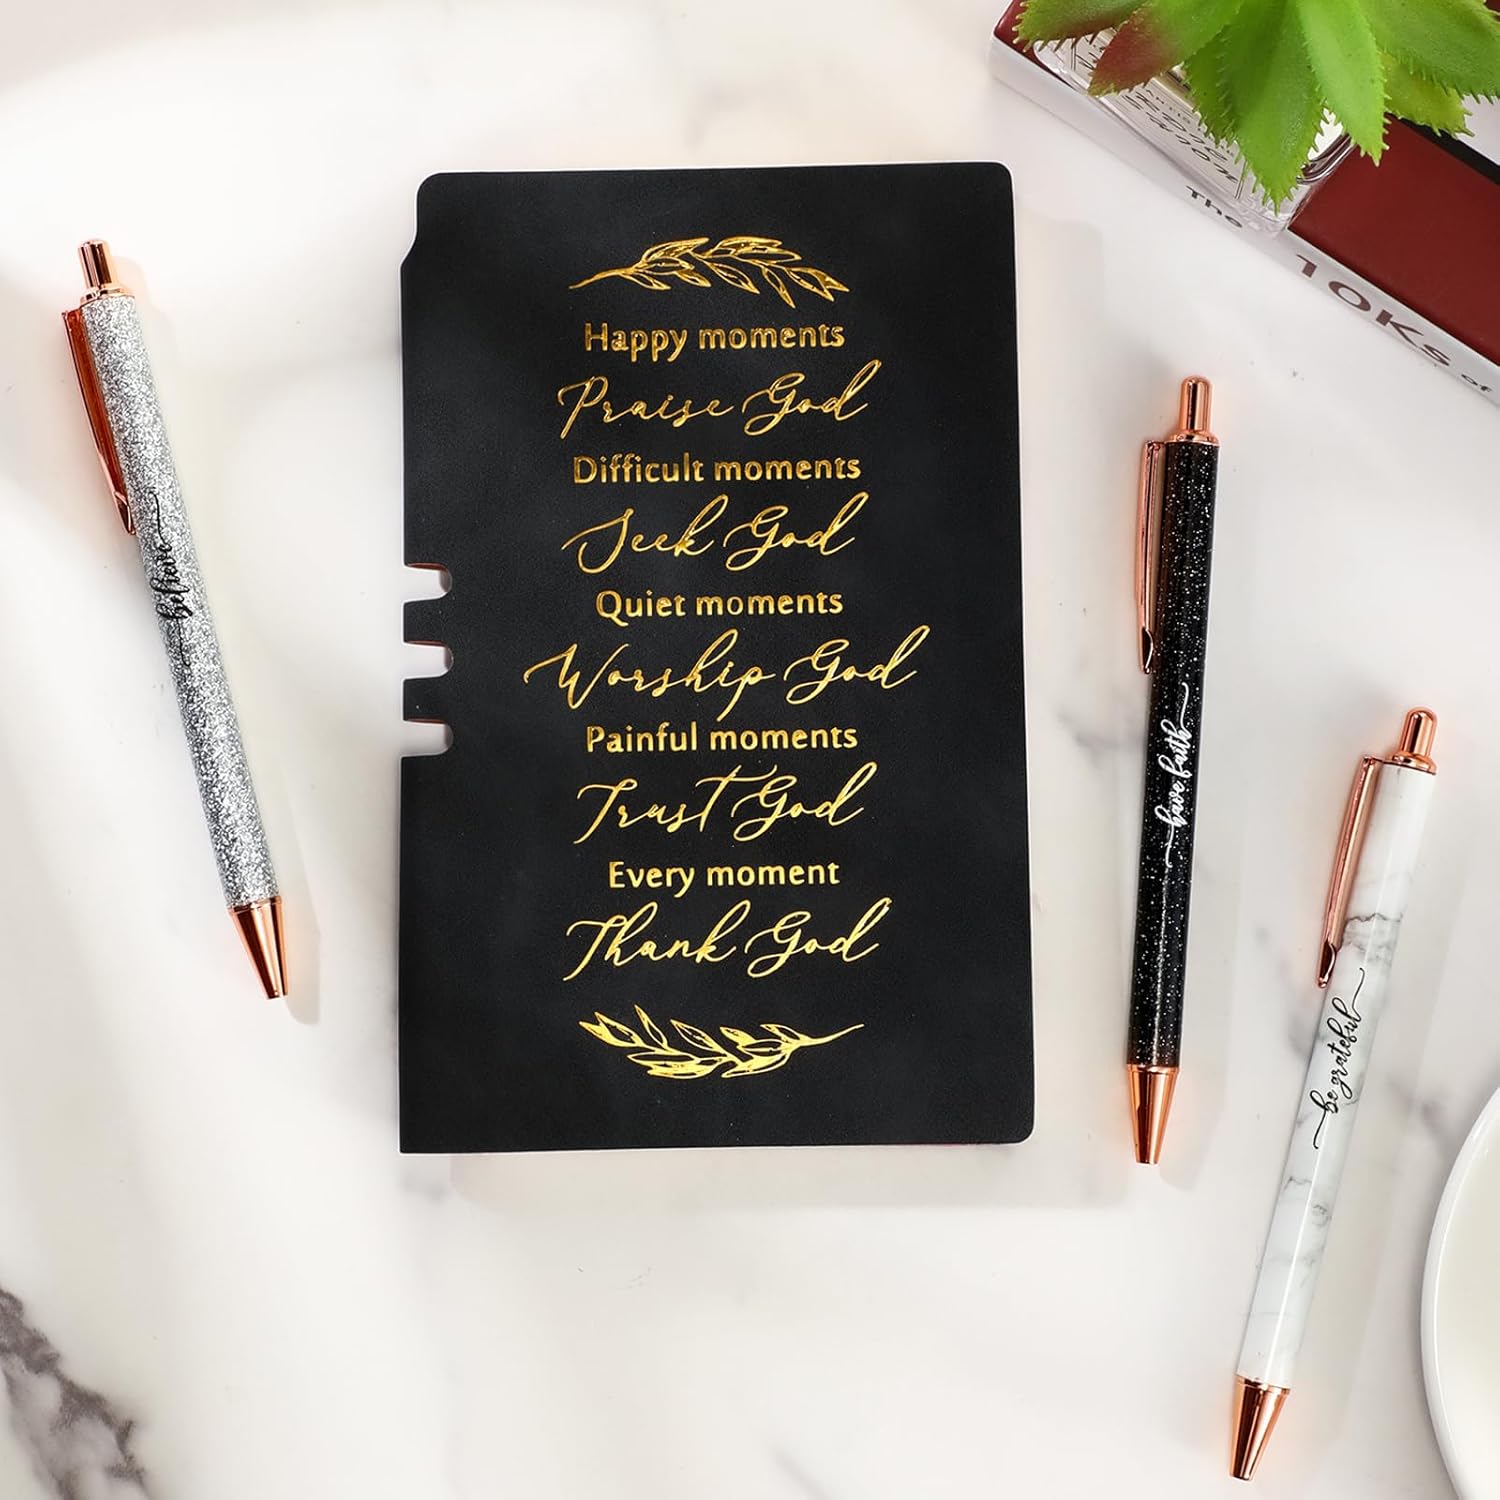 Happy moments
Praise God
Difficult moments
Seek God
Quiet moments
Worship God
Painful moments
Trust God
Every moment
Thank God
believe
have faith
be grateful
The
10KS of